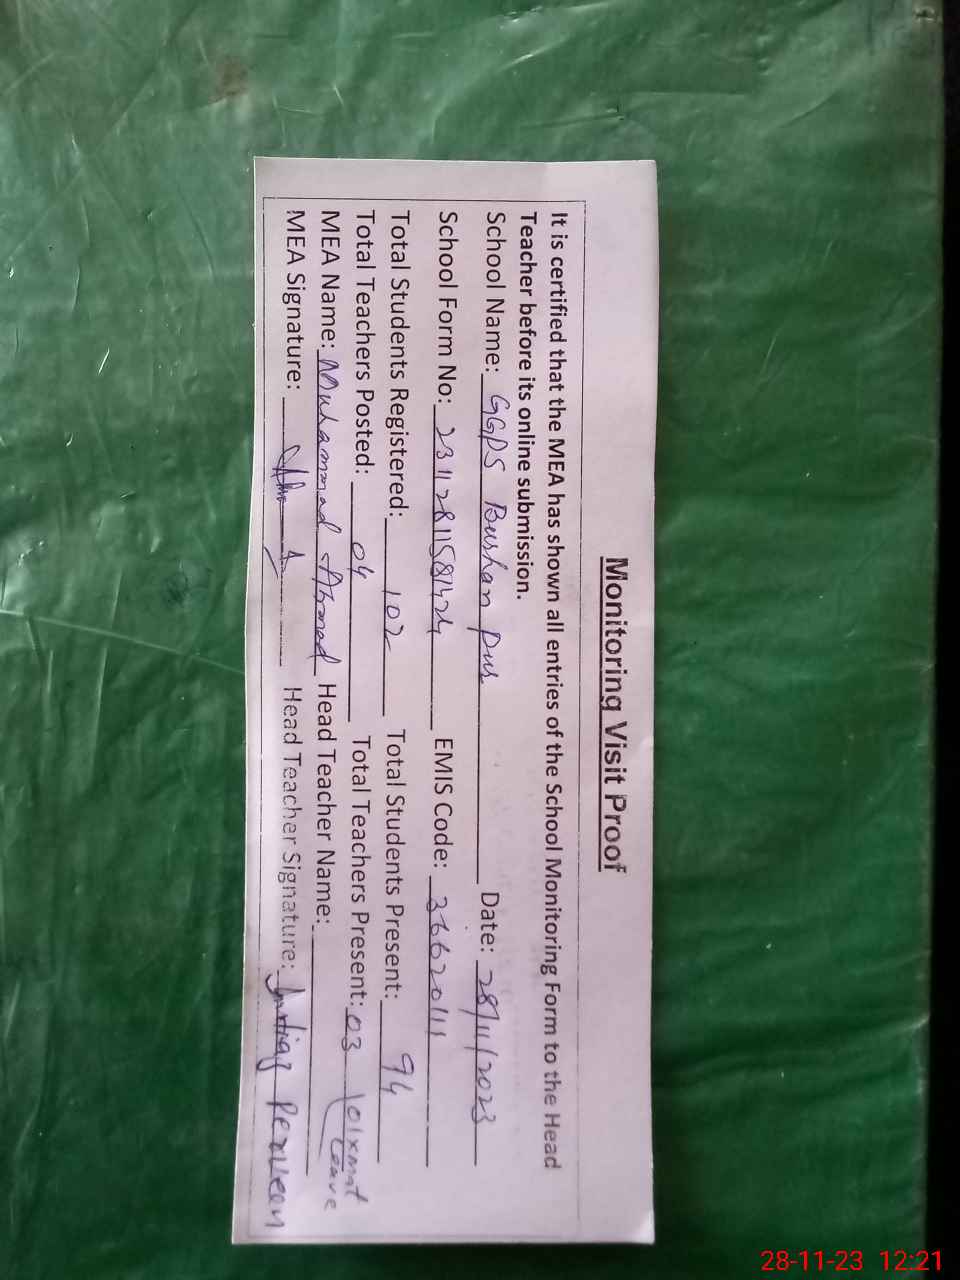 Monitoring Visit Proof
It is certified that the MEA has shown all entries of the School Monitoring Form to the Head
Teacher before its online submission.
School Name: GGPS Bushan Pur Date: 28/11/2023
School Form No: 23112811581424 EMIS Code: 36620111
Total Students Registered: 102 Total Students Present: 94
Total Teachers Posted: 04 Total Teachers Present: 03 \01xmat Leave
MEA Name: Muhammad Ahmad Head Teacher Name:
MEA Signature: Head Teacher Signature: Perveen
28-11-23 12:21